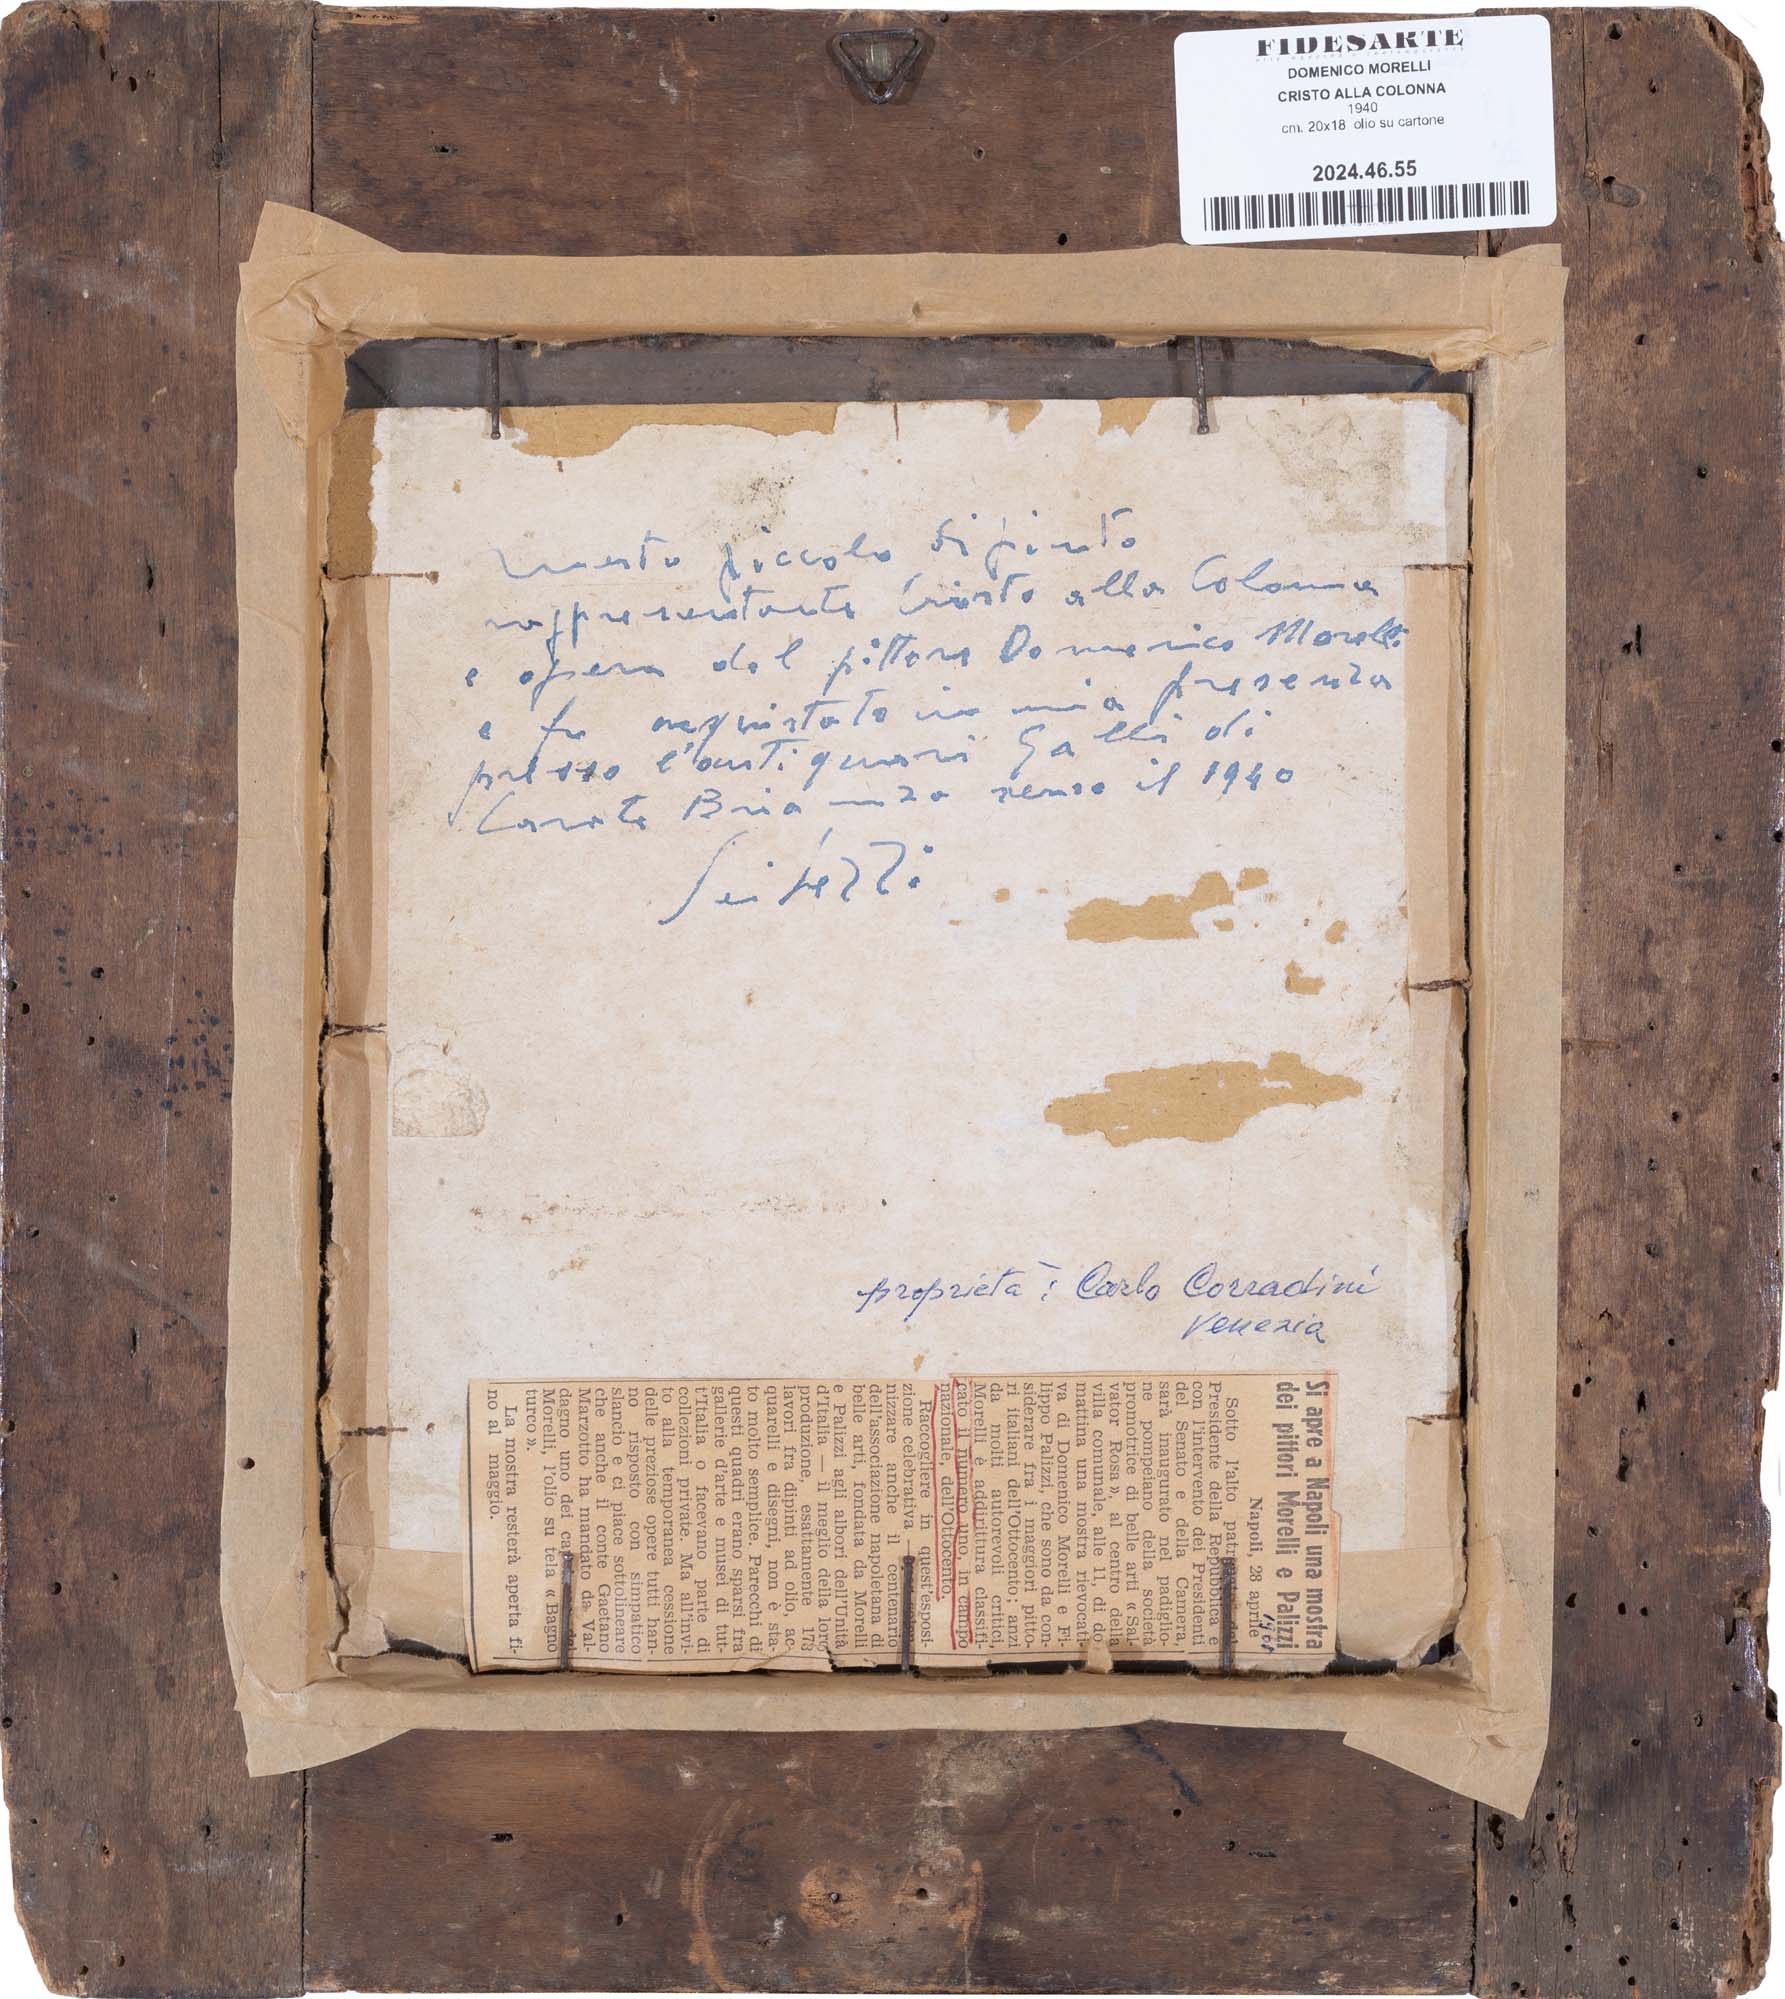 FIDESARTE
DOMENICO MORELLI
CRISTO ALLA COLONNA
1940
cm. 20x18 olio su cartone
2024.46.55
Questo piccolo dipinto
rappresentante Cristo alla Colonna
e opera del pittore Domenico Morelli
e fu acquistato in mia presenza
presso l'antiquari Galli di
Carate Brianza verso il 1940
proprietà: Carlo Corradini
Venezia
Si apre a Napoli una mostra
dei pittori Morelli e Palizzi
Napoli, 28 aprile
Sotto l'alto
Presidente della Repubblica e
con l'intervento dei Presidenti
del Senato e della Camera,
sarà inaugurato nel padiglio-
ne pompeiano della società
promotrice di belle arti « Sal-
vator Rosa », al centro della
villa comunale, alle 11, di do
mattina una mostra rievocati-
va di Domenico Morelli e Fi-
lippo Palizzi, che sono da con-
siderare fra i maggiori pitto-
ri italiani dell'Ottocento; anzi
da molti autorevoli critici,
Morelli è addirittura classifi-
cato il numero uno, in campo
nazionale, dell'Ottocento.
Raccogliere in quest'esposi-
zione celebrativa —
nizzare anche il centenario
dell'associazione napoletana di
belle arti, fondata da Morelli
e Palizzi agli albori dell'Unità
d'Italia — il meglio della loro
produzione, esattamente 173
lavori fra dipinti ad olio, ac-
quarelli e disegni, non è sta-
to molto semplice. Parecchi di
questi quadri erano sparsi fra
gallerie d'arte e musei di tut-
t'Italia o facevano parte di
collezioni private. Ma all'invi-
to alla temporanea cessione
delle preziose opere tutti han-
no risposto con simpatico
slancio e ci piace sottolineare
che anche il conte Gaetano
Marzotto ha mandato da Val-
dagno uno dei
Morelli, l'olio su tela « Bagno
turco ».
La mostra resterà aperta fi-
no al maggio.